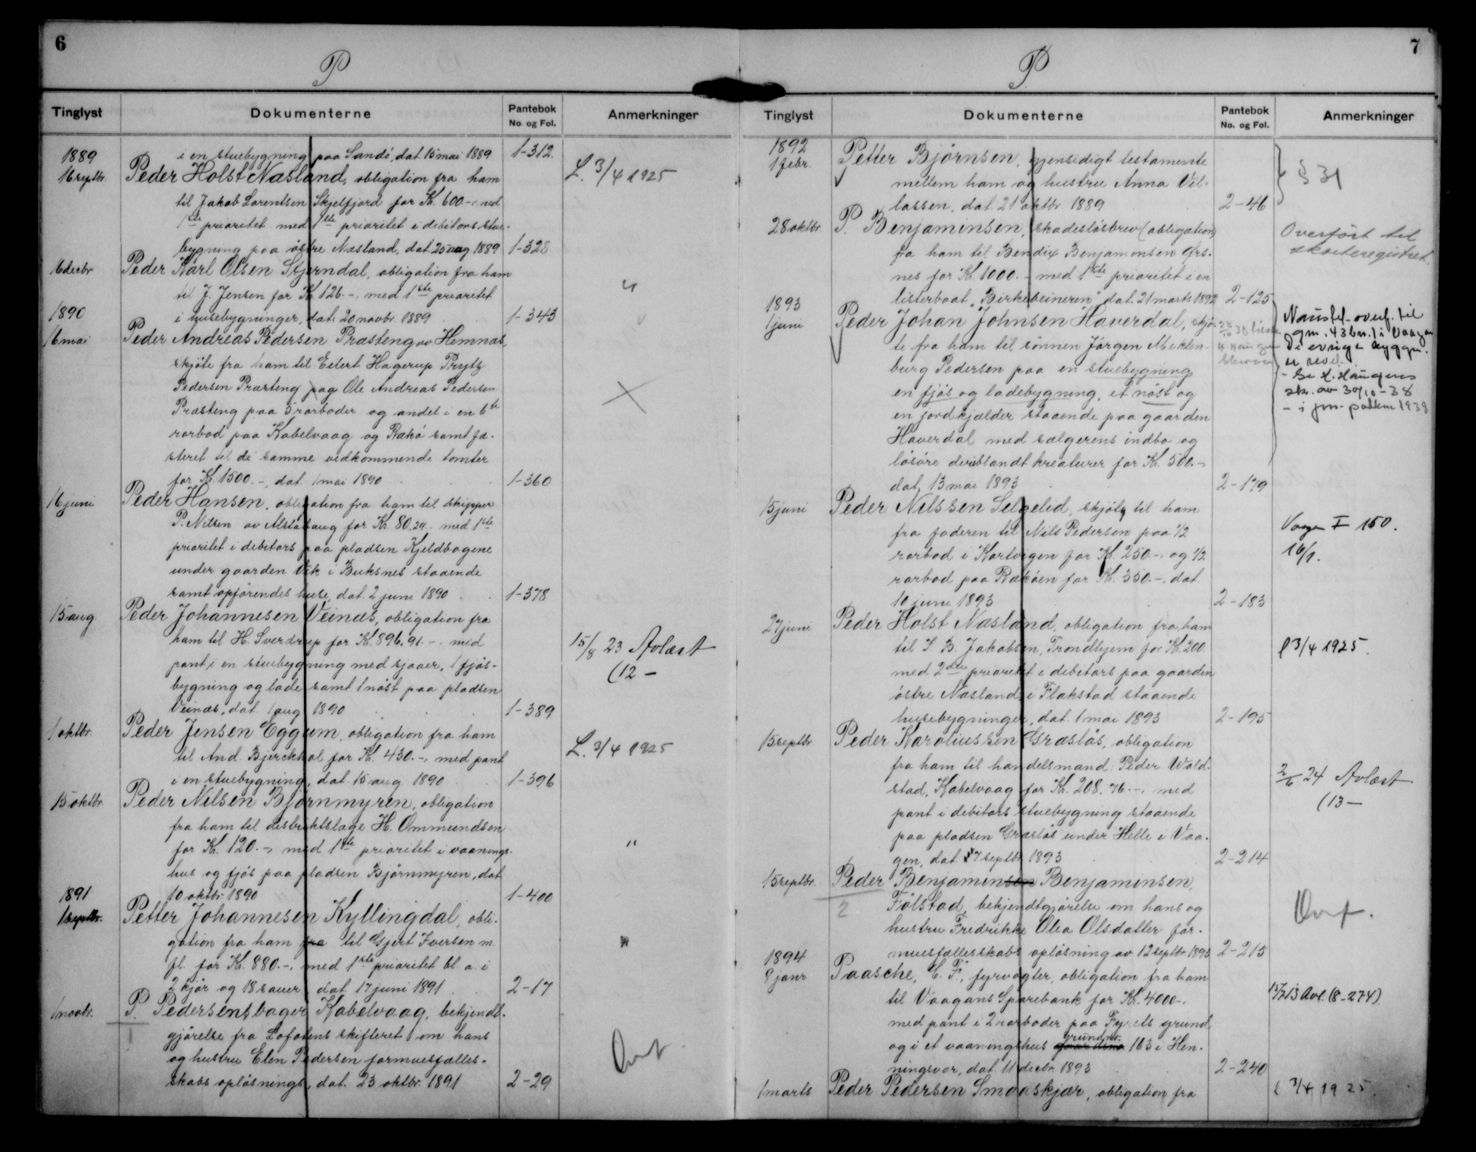 6
P
Tinglyst Dokumenterne Pantebok No. og Fol. Anmerkninger
1889 i en stuebygning paa Sandö, dat. 15 mai 1889 1-312
16 septbr. Peder Holst Næsland, obligation fra ham L. 3/4 1925
til Jakob Lorentsen Skjelfjord for K. 600 -, med
1ste prioritet med 1ste prioritet i debitors stue-
bygning paa østre Næsland, dat. 20 aug 1889 1-328
6 decbr Peder Karl Olsen Stjerndal, obligation fra ham
til J. Jensen for K. 126 -, med 1ste prioritet "
1890 i husebygninger, dat. 20 novbr 1889 1-343
16 mai Peder Andreas Pedersen Præsteng av Hemnæs,
skjöte fra ham til Eilert Hagerup Prytz
Pedersen Præsteng og Ole Andreas Pedersen
Præsteng paa 5 rorboder og andel i en 6te
rorbod paa Kabelvaag og Rækø samt fæ-
steret til de samme vedkommende tomter
for K. 1500 -, dat. 1 mai 1890 1-360
16 juni Peder Hansen, obligation fra ham til skipper
P. Nilsen av Alstahaug for K. 80.24 - med 1ste
prioritet i debitors paa pladsen Kjeldbogene
under gaarden Vik i Buksnes staaende
samt opförendes huse, dat. 2 juni 1890 1-378
15 aug Peder Johannesen Veinæs, obligation fra
ham til H. Sverdrup for K. 896.91 - med 15/8 23 Avlæst
pant i en stuebygning med sjaaer, 1 fjös- (12 -
bygning og lade samt 1 nöst paa pladsen
Veinæs, dat. 1 aug 1890 1-389
1 oktbr. Peder Jensen Eggum, obligation fra ham
til And. Bjerckhol for K. 430 -, med pant L. 3/4 1925
i en stuebygning, dat. 15 aug 1890 1-396
15 oktbr. Peder Nilsen Bjørnmyren, obligation
fra ham til distriktslæge H. Ommundsen
for K. 120 -, med 1ste prioritet i vaanings- "
hus og fjös paa pladsen Bjørnmyren, dat.
1891 10 oktbr 1890 1-400
1 septbr. Petter Johannesen Kyllingdal, obli-
gation fra ham fra til Gjert Iversen m. "
fl. for K. 880 -, med 1ste prioritet bl. a. i
2 kjør og 18 sauer, dat. 17 juni 1891 2-17
1 novbr. P. Pedersens bager Kabelvaag, bekjendt-
gjörelse fra Lofotens skifteret om hans
og hustru Elen Pedersen formuesfælles- Ovf
skabs oplösnings, dat. 23 oktbr. 1891 2-29
7
P.
Tinglyst Dokumenterne Pantebok No. og Fol. Anmerkninger
1892
1 febr. Petter Bjørnsen, gjensidigt testamente
mellem ham og hustru Anna Vil- § 31
lassen, dat. 21 oktbr 1889 2-46
28 oktbr. P. Benjamensen, skadeslösbrev (obligation) Overfört til
fra ham til Bendix Benjamensen Grs- skorteregistret.
nes for K. 1000 - med 1ste prioritet i en
1893 listerbaat "Birkebeineren" dat. 21 marts 1892 2-125
1 juni Peder Johan Johnsen Haverdal, skjö-
te fra ham til sönnen Jörgen Meklen-
burg Pedersen paa en stuebygning
en fjös og ladebygning, et nöst og
en jordkjælder staaende paa gaarden
Haverdal med sælgerens indbo og
lösöre deriblandt kreaturer for K. 500 -,
dat. 13 mai 1893 2-179
Naustet overf. til
gnr. 43 bnr. 1 i Vaagan
De övrige byggn.
er
- Se H. Haugens
sk. av 30/10-38
- i jrn. pakken 1939
15 juni Peder Nilssen Selgelid, skjöte til ham
fra faderen til Nils Pedersen paa 1/2 Vaagan I 150.
rorbod i Kartvegen for K. 250 -, og 1/2 16/1.
rorbod paa Rækøen for K. 350 -, dat.
10 juni 1893 2-183
27 juni Peder Holst Næsland, obligation fra ham
til S. B. Jakobsen, Trondhjem for K. 200 l 3/4 1925.
med 2den prioritet i debitors paa gaarden
østre Næsland i Flakstad staaende
husebygninger, dat. 1 mai 1893 2-195
15 septbr. Peder Karoliussen Græslös, obligation
fra ham til handelsmand Peder Wold- 2/6 24 Avlæst
stad, Kabelvaag for K. 208.76 -, med (13 -
pant i debitors stuebygning staaende
paa pladsen Græslös under Helle i Vaa-
gen, dat. 7 septbr. 1893 2-214
15 septbr. Peder Benjaminsen Benjaminsen,
2 Følstad, bekjendtgjörelse om hans og Ovf.
hustru Fredrikke Olea Olsdatter for-
1894 muesfællesskabs oplösning av 12 septbr 1893 2-215
9 janr Paasche, C. F., fyrvogter, obligation fra ham
til Vaagans Sparebank for K. 4000 -. 13 Avl. (8-274)
med pant i 2 rorboder paa Fyrets grund
og i et vaaningshus grundnr. 163 i Hen-
ningsvær, dat. 11 decbr 1893 2-240
1 marts Peder Pedersen Smaaskjær, obligation fra l 3/4 1925.